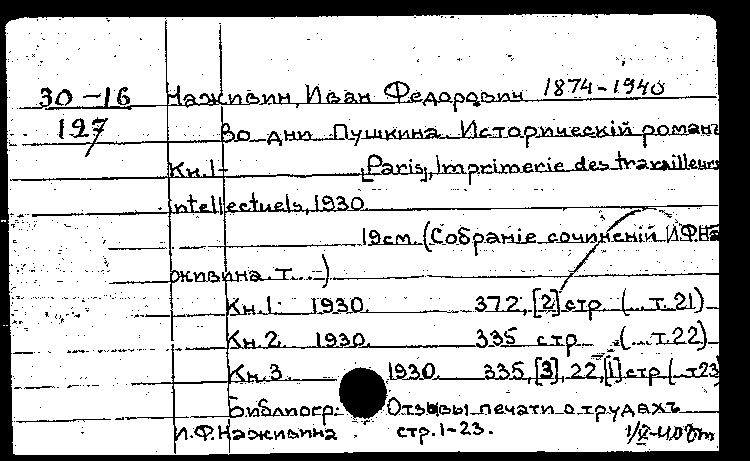 30-16 Наживин, Иван Федорович 1874-1940
127 Во дни Пушкина. Историческій романъ
Кн.1- [Paris], Imprimerie des travailleurs
intellectuels, 1930.
19см. (Собраніе сочиненій И.Ф.На
живина. т....)
Кн.1. 1930. 372, [2] стр. (...т.21)
Кн.2. 1930. 335 стр. (...т.22)
Кн.3. 1930. 335, [3], 22, [1] стр. (...т.23
Библиогр.: Отзывы печати о трудахъ
И.Ф.Наживина стр.1-23.